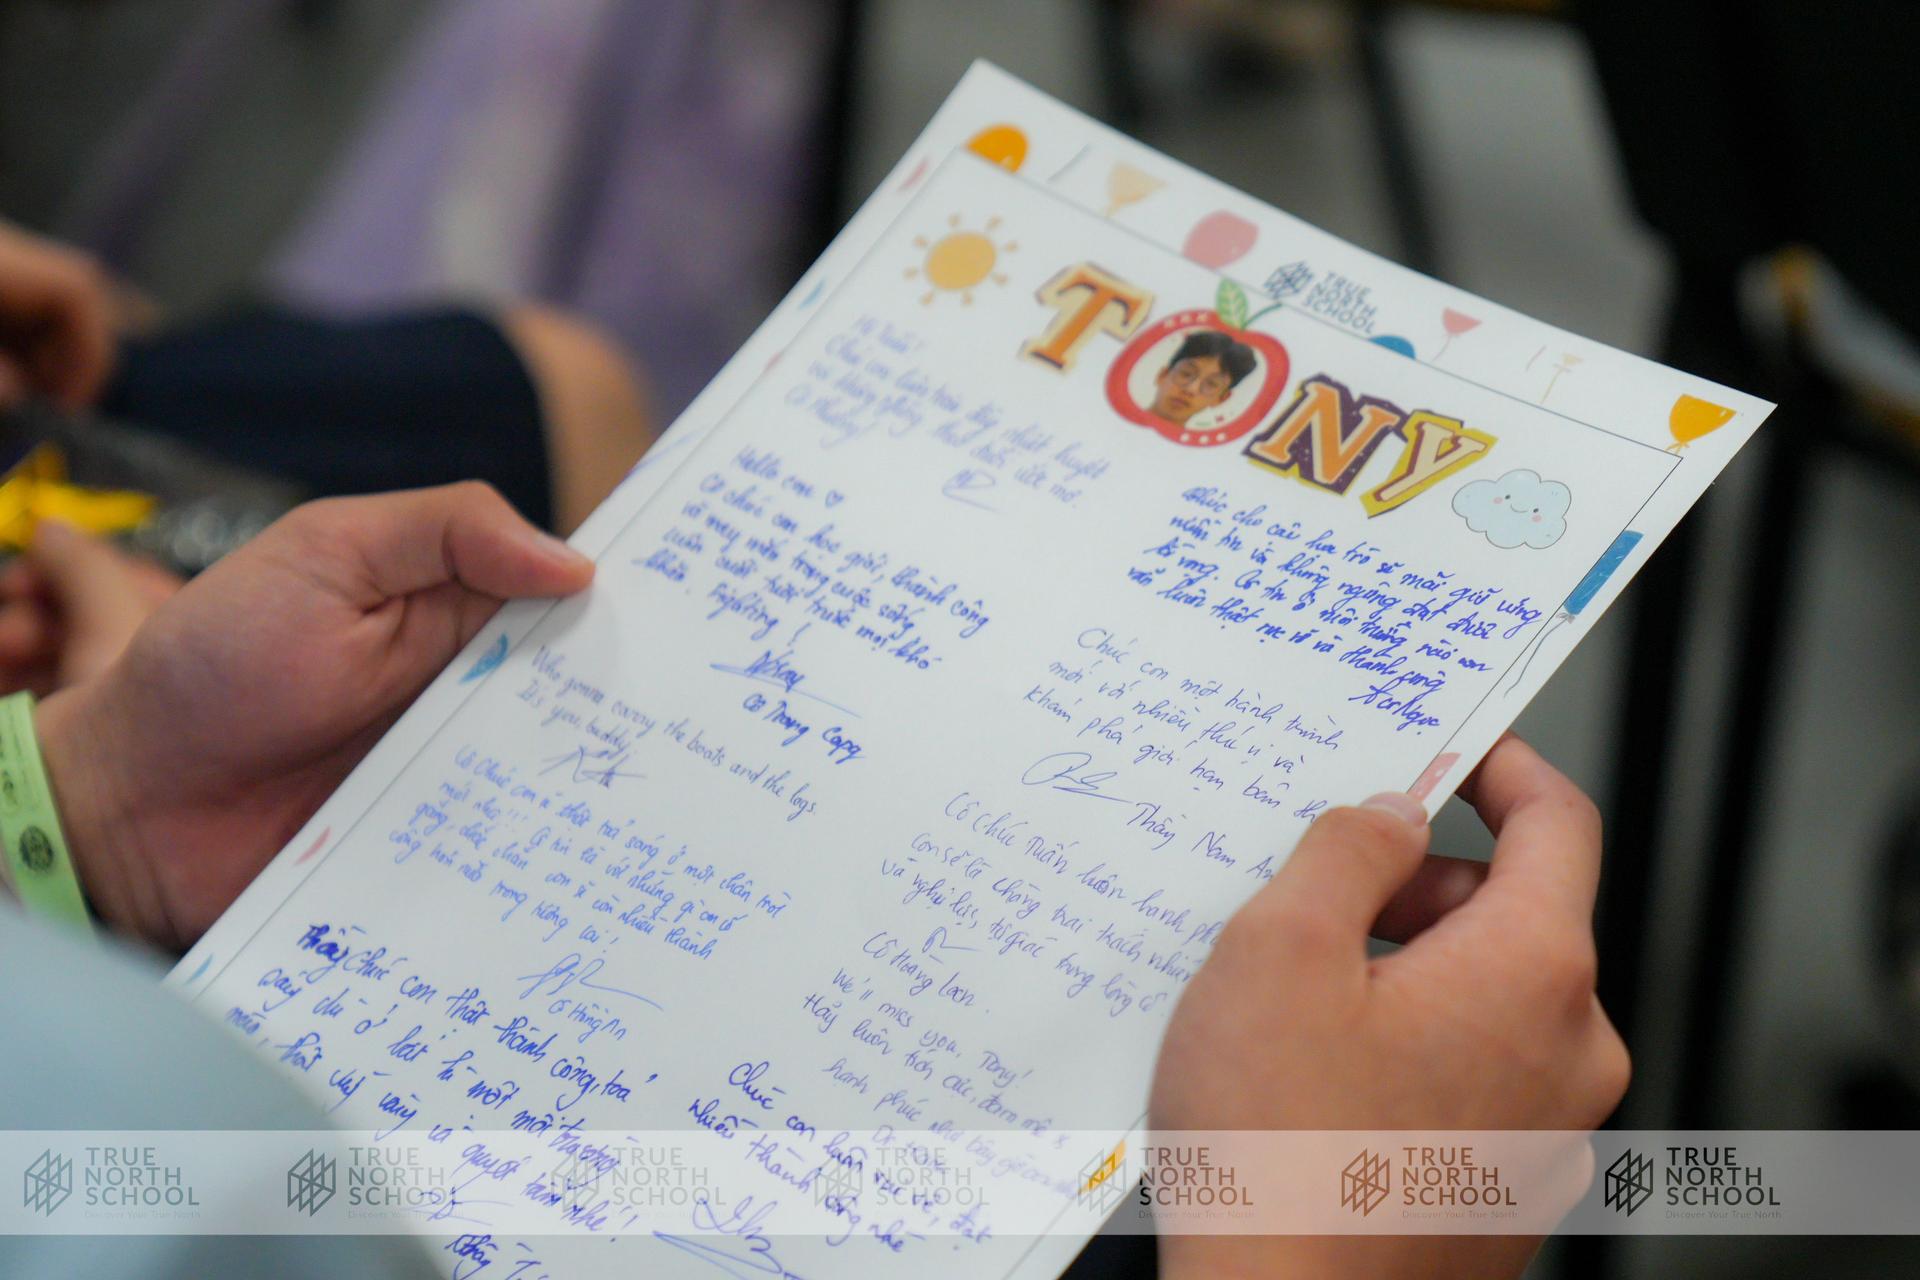 TRUE
NORTH
SCHOOL
TONY
Hi Tuấn!
Chúc con luôn tràn đầy nhiệt huyết
và không ngừng theo đuổi ước mơ.
Cô Phương!
Hello con ♡
Cô chúc con học giỏi, thành công
và may mắn trong cuộc sống,
luôn cười tươi trước mọi khó
khăn. Fighting!
Cô Trang Capy
Who gonna carry the boats and the logs.
It's you, buddy.
Cô Chúc con sẽ thật toả sáng ở một chân trời
mới nha!!! Cô tin là với những gì con cố
gắng, chắc chắn con sẽ còn nhiều thành
công hơn nữa trong tương lai!
Cô Hồng An
Thầy Chúc con thật thành công, toả
sáng dù ở bất kì một môi trường
nào, thật vững vàng và quyết tâm nhé!
Thầy
Chúc cho cậu học trò sẽ mãi giữ vững
niềm tin và không ngừng đạt được
kì vọng. Cô tin ở môi trường nào con
vẫn luôn thật rực rỡ và thành công
Chúc con một hành trình
mới với nhiều thú vị và
khám phá giới hạn bản th
Thầy Nam An
Cô chúc Tuấn luôn hạnh ph
con sẽ là chàng trai trách nhiệm
và nghị lực, tử giác trong lòng cô.
Cô Hoàng Loan.
We'll miss you, Tony!
Hãy luôn tích cực, đam mê &
hạnh phúc như bây giờ con nhé
Chúc con luôn vui vẻ, đạt
nhiều thành công nhé
TRUE
NORTH
SCHOOL
Discover Your True North
TRUE
NORTH
SCHOOL
Discover Your True North
TRUE
NORTH
SCHOOL
TRUE
NORTH
SCHOOL
TRUE
NORTH
SCHOOL
Discover Your True North
TRUE
NORTH
SCHOOL
Discover Your True North
TRUE
NORTH
SCHOOL
Discover Your True North